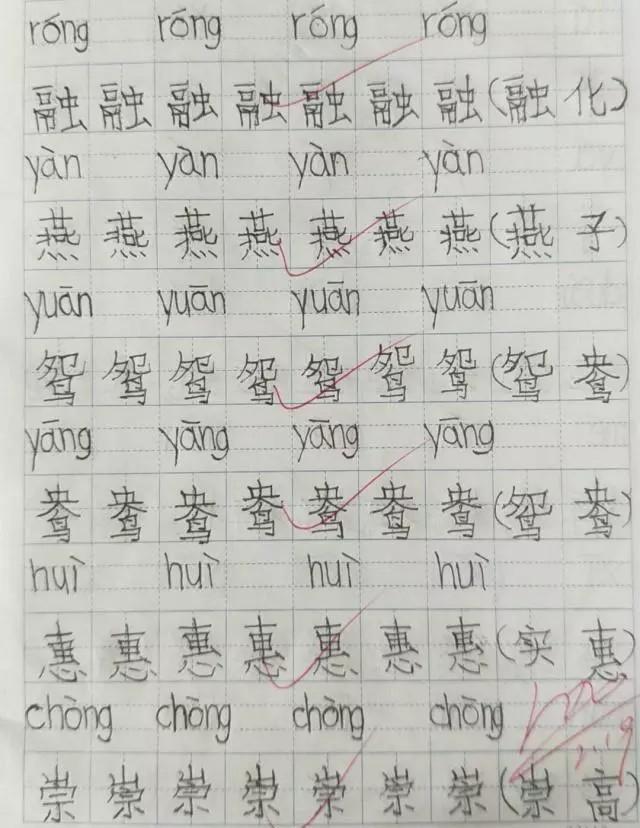 róng róng róng róng
融融融融融融融(融化)
yàn yàn yàn yàn
燕燕燕燕燕燕燕(燕子)
yuān yuān yuān yuān
鸳鸳鸳鸳鸳鸳鸳(鸳鸯)
yāng yāng yāng yāng
鸯鸯鸯鸯鸯鸯鸯(鸳鸯)
huì huì huì huì
惠惠惠惠惠惠惠(实惠)
chòng chòng chòng chòng
崇崇崇崇崇崇崇(崇高)